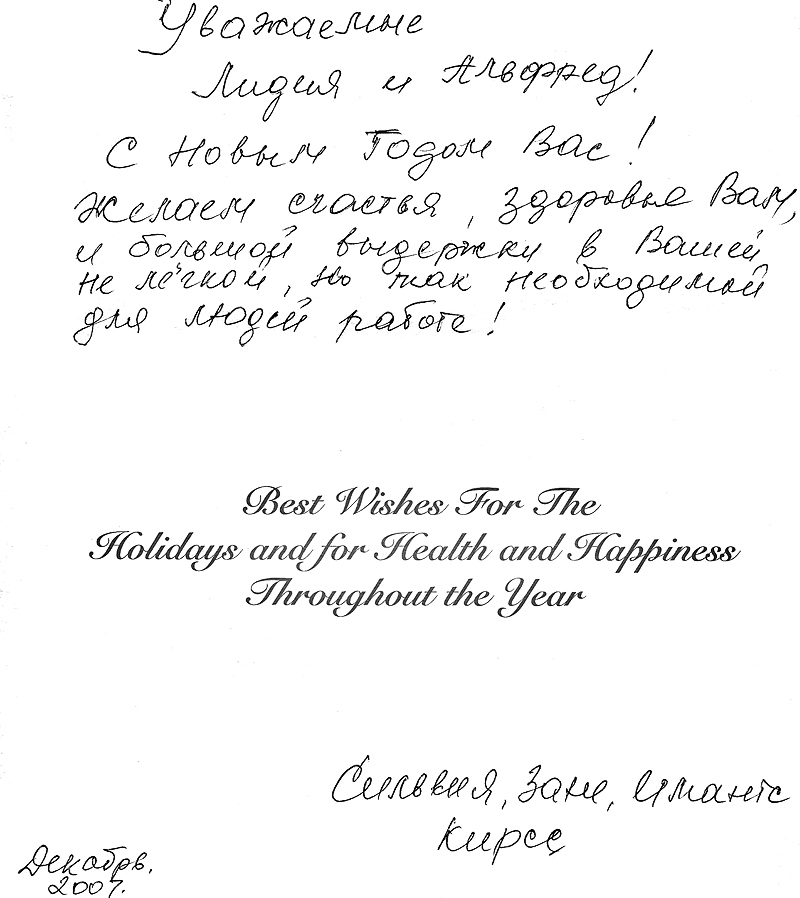 Уважаемые
Лидия и Альфред!
С Новым Годом Вас!
Желаем счастья, здоровье Вам,
и большой выдержки в Вашей
не лёгкой, но так необходимой
для людей работе!
Best Wishes For The
Holidays and for Health and Happiness
Throughout the Year
Сильвия, Зане, Имантс
Кирсе
Декабрь.
2007.